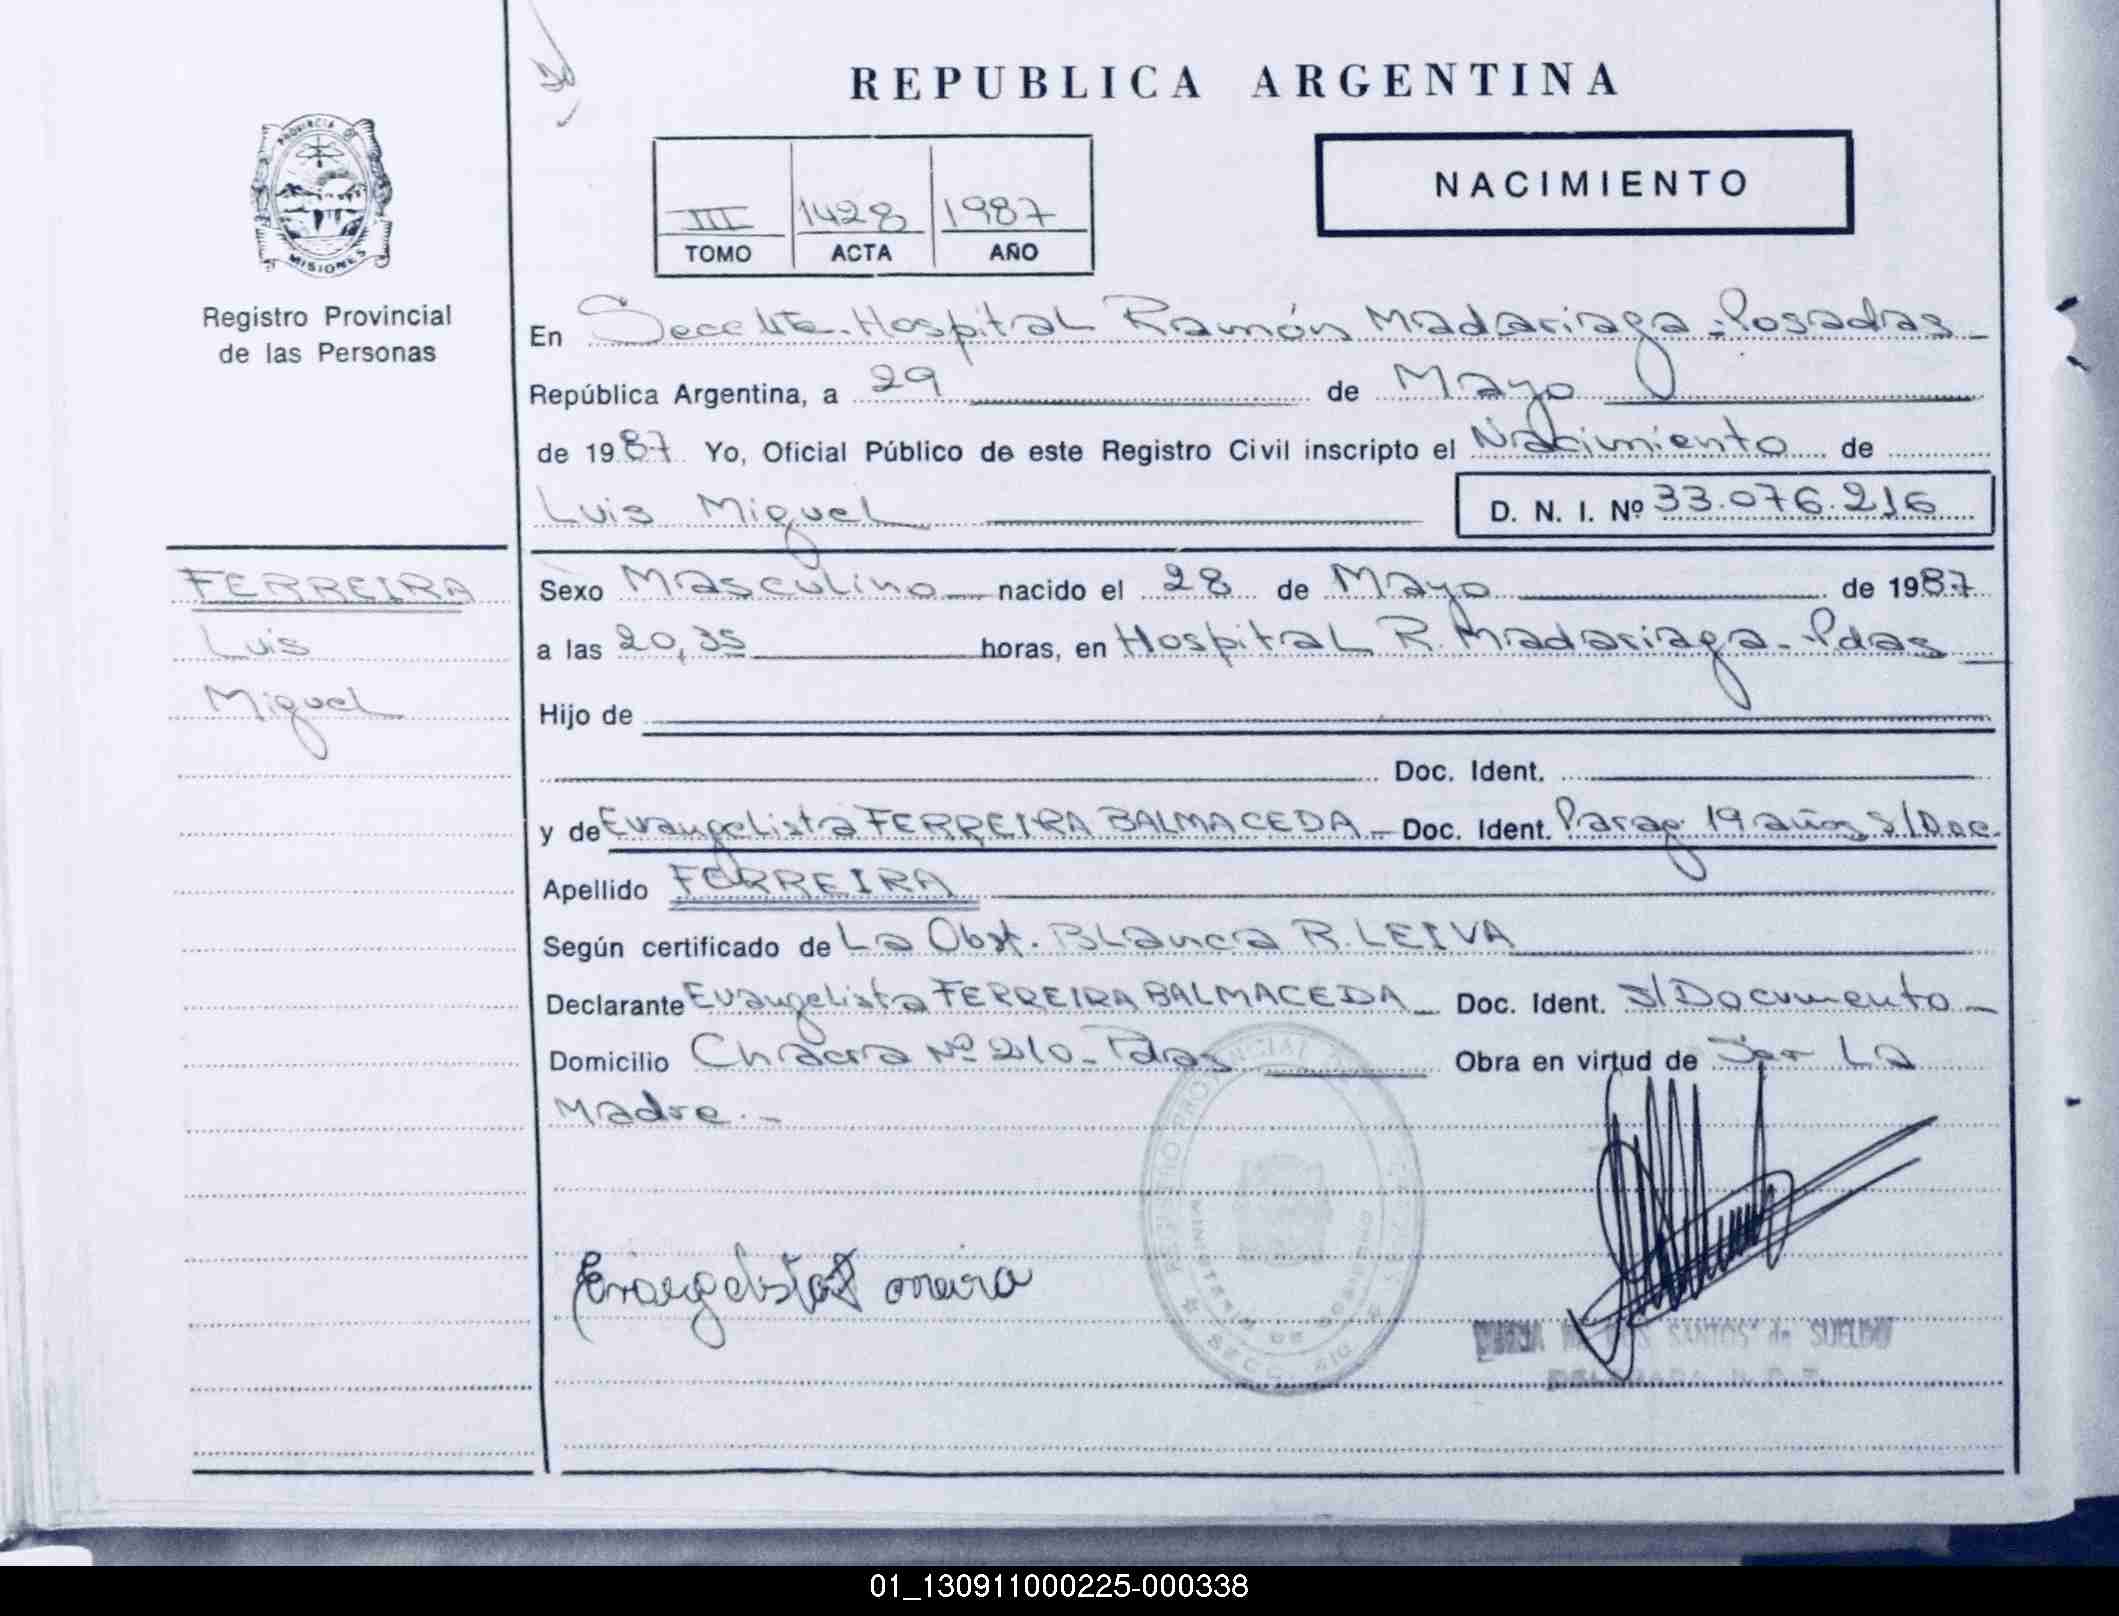 REPUBLICA ARGENTINA
PROVINCIA DE
MISIONES
Registro Provincial
de las Personas
III 1428 1987
TOMO ACTA AÑO
NACIMIENTO
En Secc 4ta. Hospital Ramón Madariaga - Posadas
República Argentina, a 29 de Mayo
de 1987 Yo, Oficial Público de este Registro Civil inscripto el Nacimiento de
Luis Miguel D. N. I. Nº 33.076.216
FERREIRA
Luis
Miguel
Sexo Masculino nacido el 28 de Mayo de 1987
a las 20,35 horas, en Hospital R. Madariaga - Pdas
Hijo de
Doc. Ident.
y de Evangelista FERREIRA BALMACEDA - Doc. Ident. Parag. 19 años s/Doc.
Apellido FERREIRA
Según certificado de La Obst. Blanca R. LEIVA
Declarante Evangelista FERREIRA BALMACEDA - Doc. Ident. s/Documento -
Domicilio Chacra Nº 210 - Pdas Obra en virtud de Ser La
Madre. -
REGISTRO PROVINCIAL DE
MINISTERIO DE GOBIERNO
Evangelista Ferreira
SANTOS de SUELDO
01_130911000225-000338